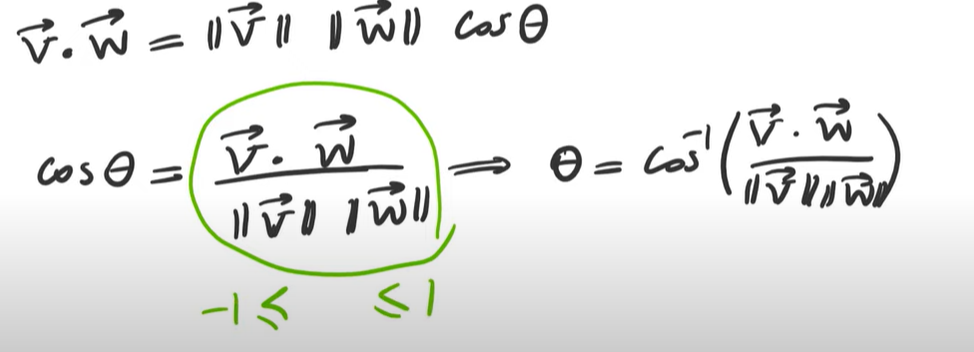 v⃗ · w⃗ = ‖v⃗‖ ‖w⃗‖ cos θ
cos θ = (v⃗ · w⃗) / (‖v⃗‖ ‖w⃗‖) ⟹ θ = cos⁻¹( (v⃗ · w⃗) / (‖v⃗‖ ‖w⃗‖) )
-1 ≤ ≤ 1